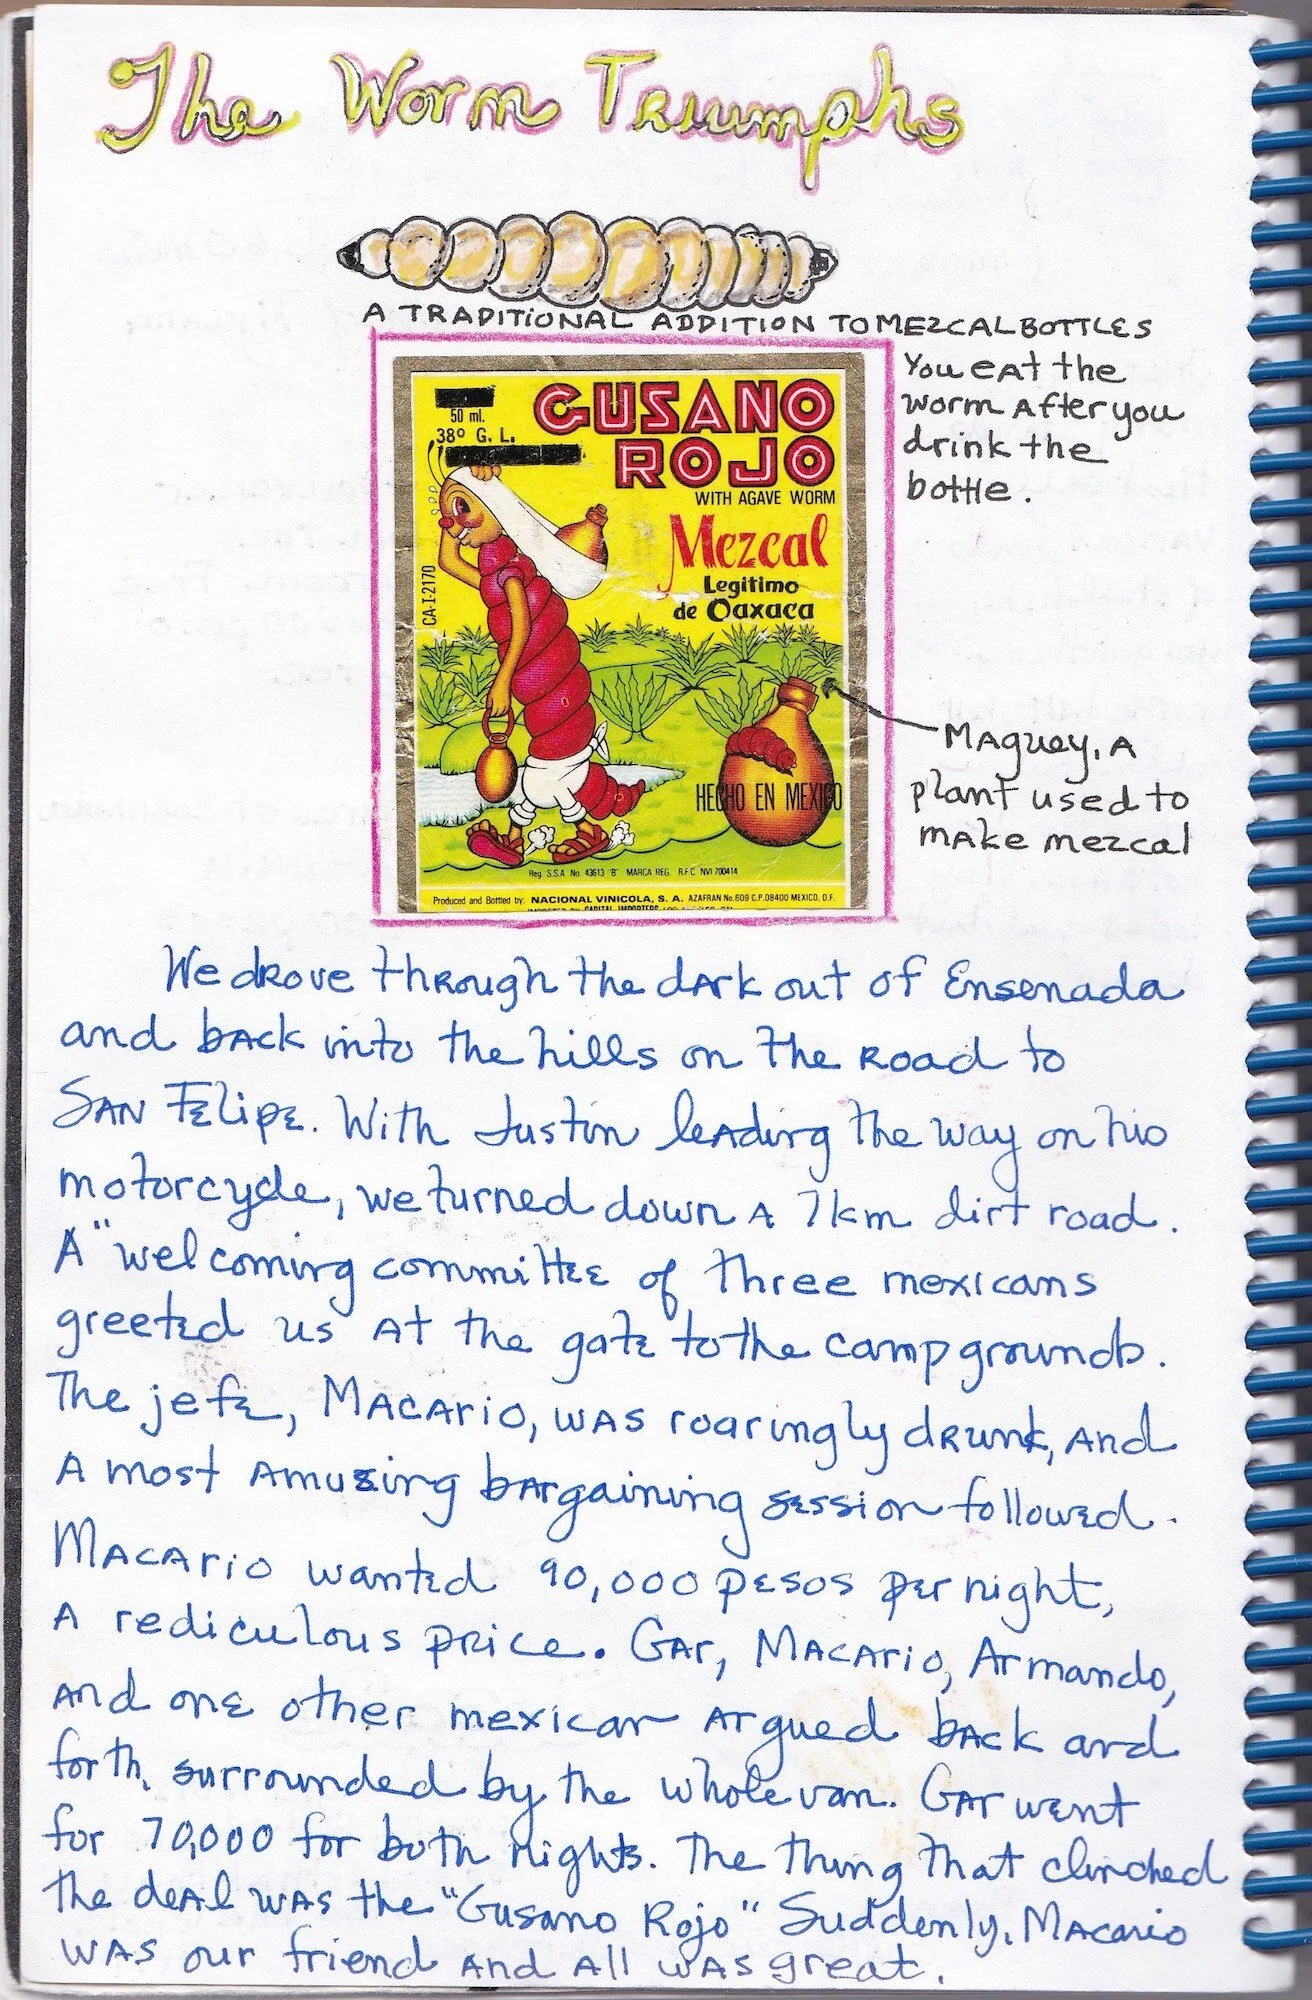 The Worm Triumphs
A TRADITIONAL ADDITION TO MEZCAL BOTTLES
You eat the
worm after you
drink the
bottle.
50 ml.
38° G. L.
GUSANO
ROJO
WITH AGAVE WORM
Mezcal
Legitimo
de Oaxaca
CA-I-2170
Maguey, a
plant used to
make mezcal
HECHO EN MEXICO
Reg. S.S.A. No. 43613 "B" MARCA REG. R.F.C. NVI 700414
Produced and Bottled by: NACIONAL VINICOLA, S. A. AZAFRAN No. 609 C.P. 08400 MEXICO, D.F.
We drove through the dark out of Ensenada
and back into the hills on the road to
San Felipe. With Justin leading the way on his
motorcycle, we turned down a 7km dirt road.
A "welcoming committee of three mexicans
greeted us at the gate to the campgrounds.
The jefe, Macario, was roaringly drunk, and
a most amusing bargaining session followed.
Macario wanted 90,000 pesos per night,
a rediculous price. Gar, Macario, Armando,
and one other mexican argued back and
forth, surrounded by the whole van. Gar went
for 70,000 for both nights. The thing that clinched
the deal was the "Gusano Rojo" Suddenly, Macario
was our friend and all was great.